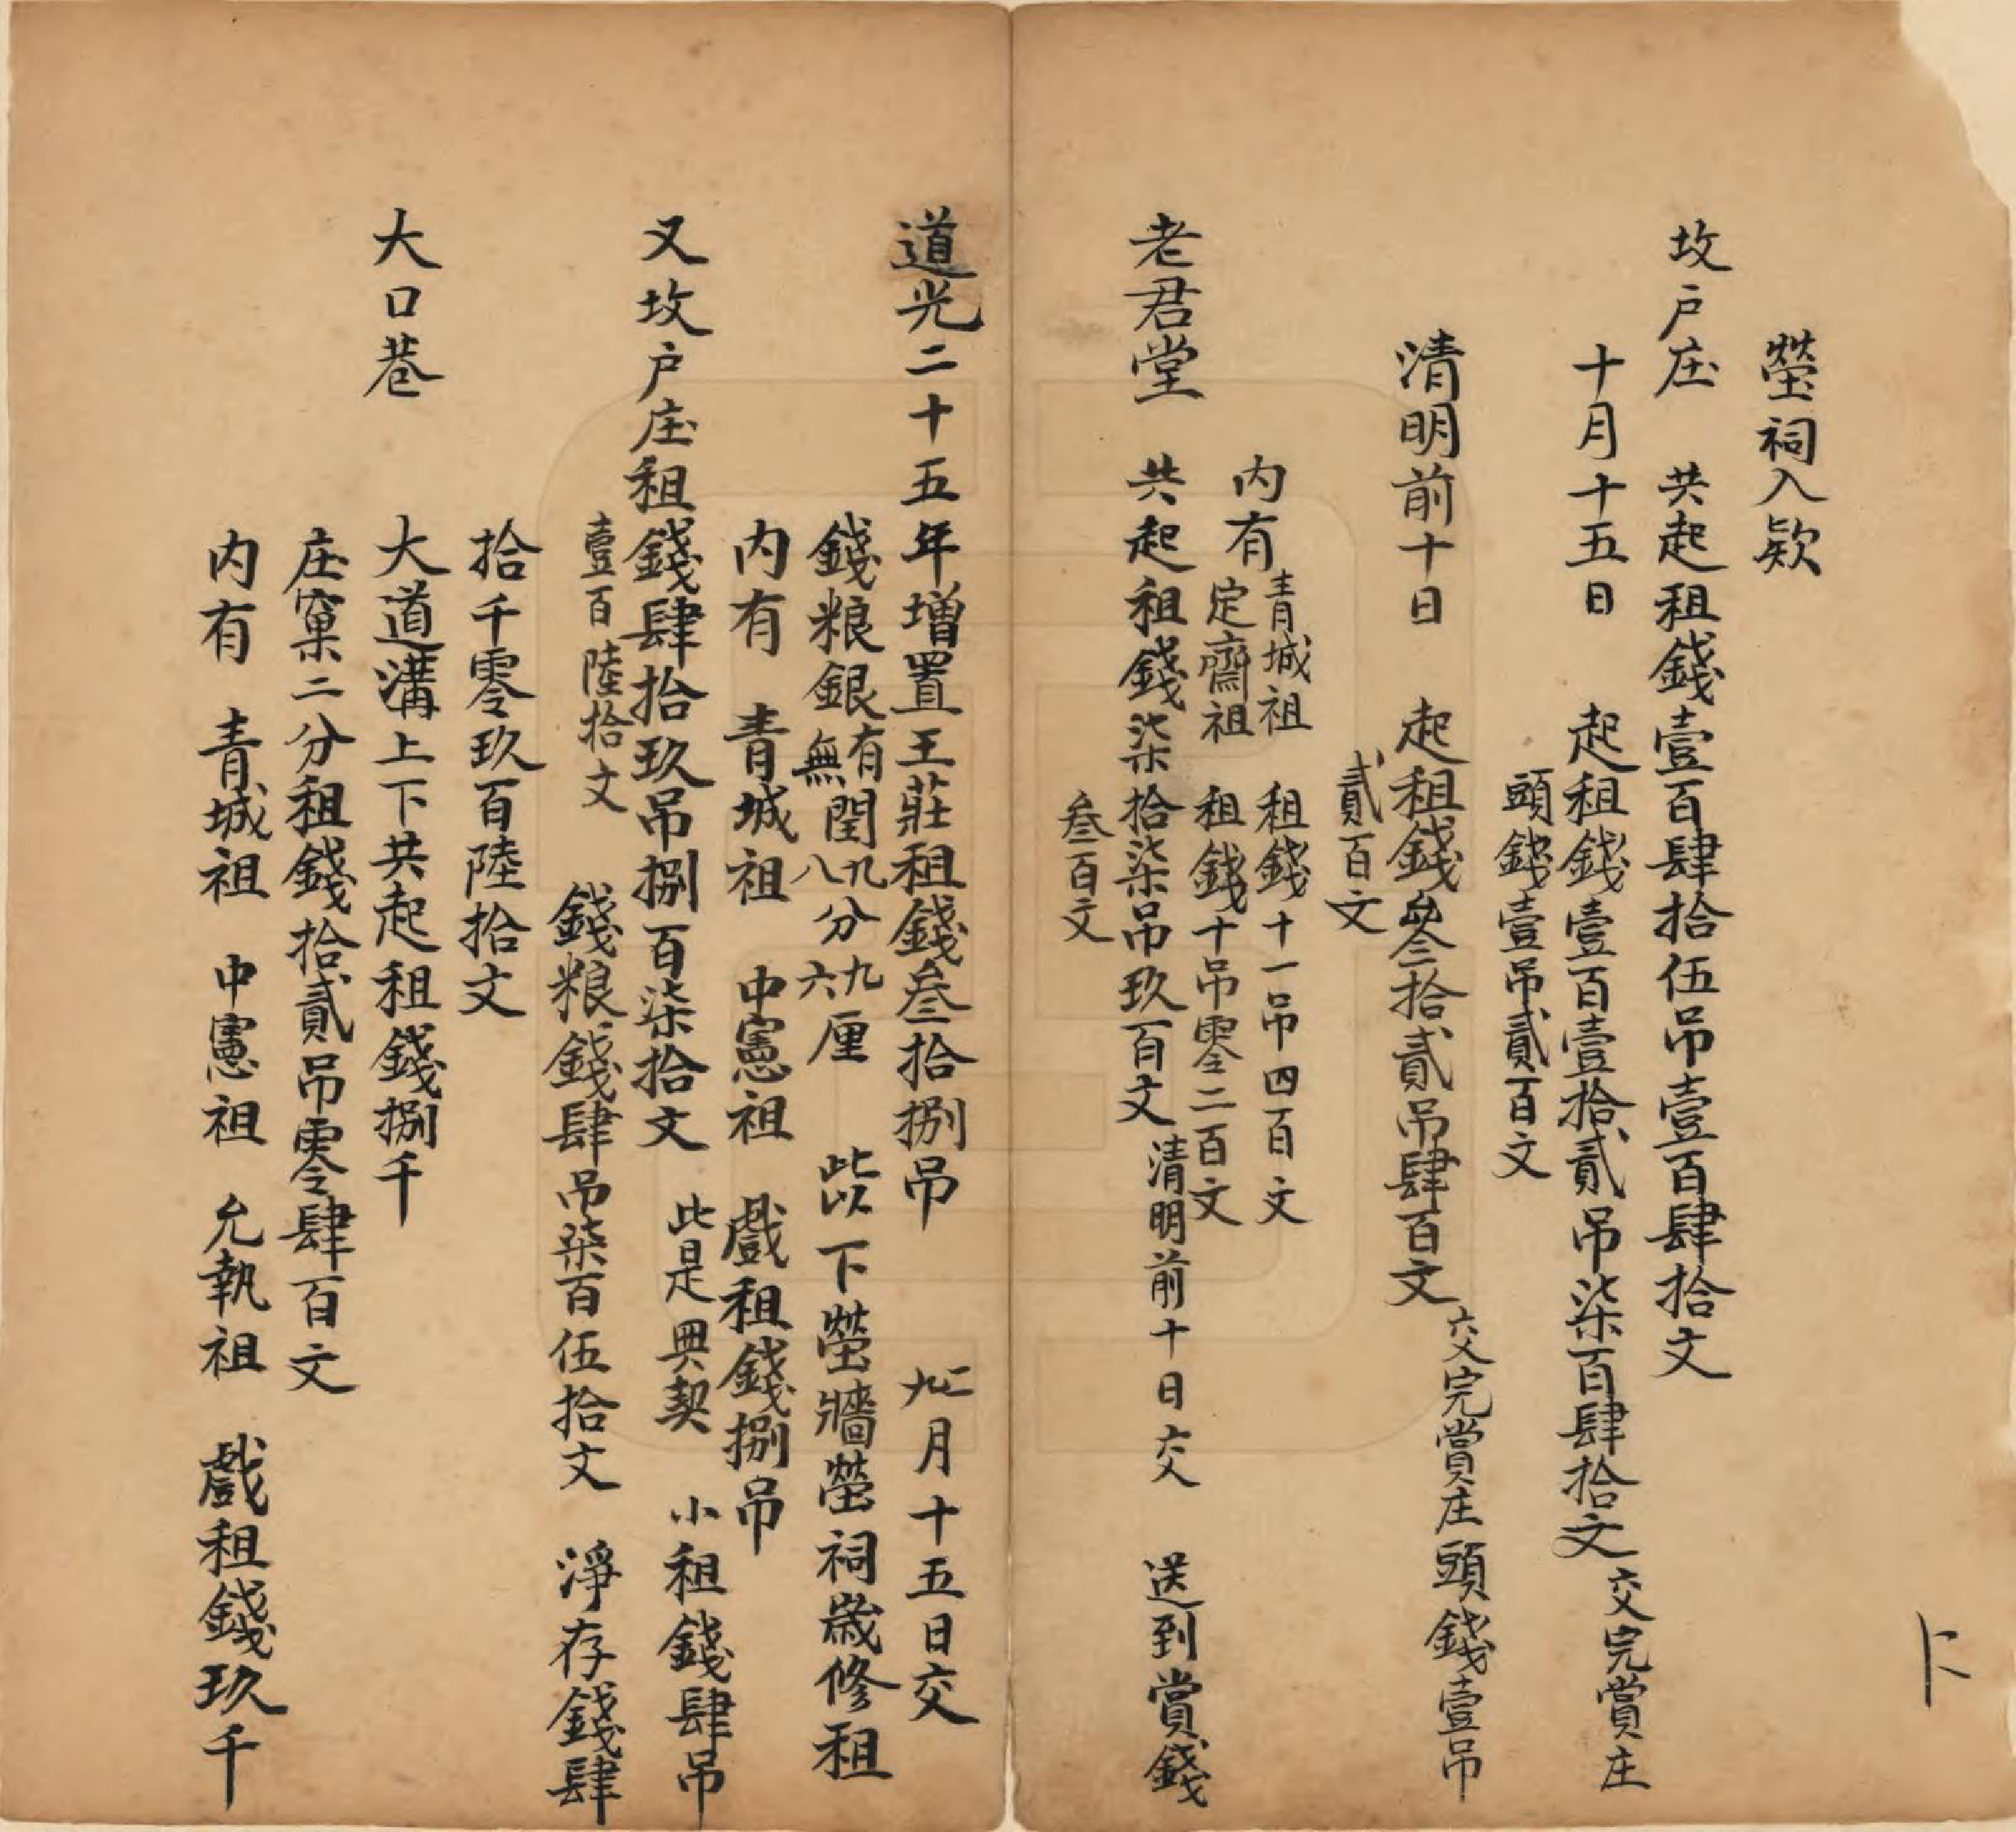 塋祠入欵
坟户庄　共起租錢壹百肆拾伍吊壹百肆拾文
十月十五日　起租錢壹百壹拾貳吊柒百肆拾文 交完賞庄
頭錢壹吊貳百文
清明前十日　起租錢叅拾貳吊肆百文 交完賞庄頭錢壹吊
貳百文
内有 青城祖　租錢十一吊四百文
定齋祖　租錢十吊零二百文
老君堂　共起租錢柒拾柒吊玖百文 清明前十日交　送到賞錢
叁百文
道光二十五年增置王莊租錢叁拾捌吊　月十五日交
錢粮銀 有無閏 九八分 九六厘　此以下塋牆塋祠歲修租
内有　青城祖　中憲祖　戲租錢捌吊
又坟户庄租錢肆拾玖吊捌百柒拾文　此是典契　小租錢肆吊
壹百陸拾文　錢粮錢肆吊柒百伍拾文　淨存錢肆
拾千零玖百陸拾文
大口巷　大道溝上下共起租錢捌千
庄窠二分租錢拾貳吊零肆百文
内有　青城祖　中憲祖　允執祖　戲租錢玖千